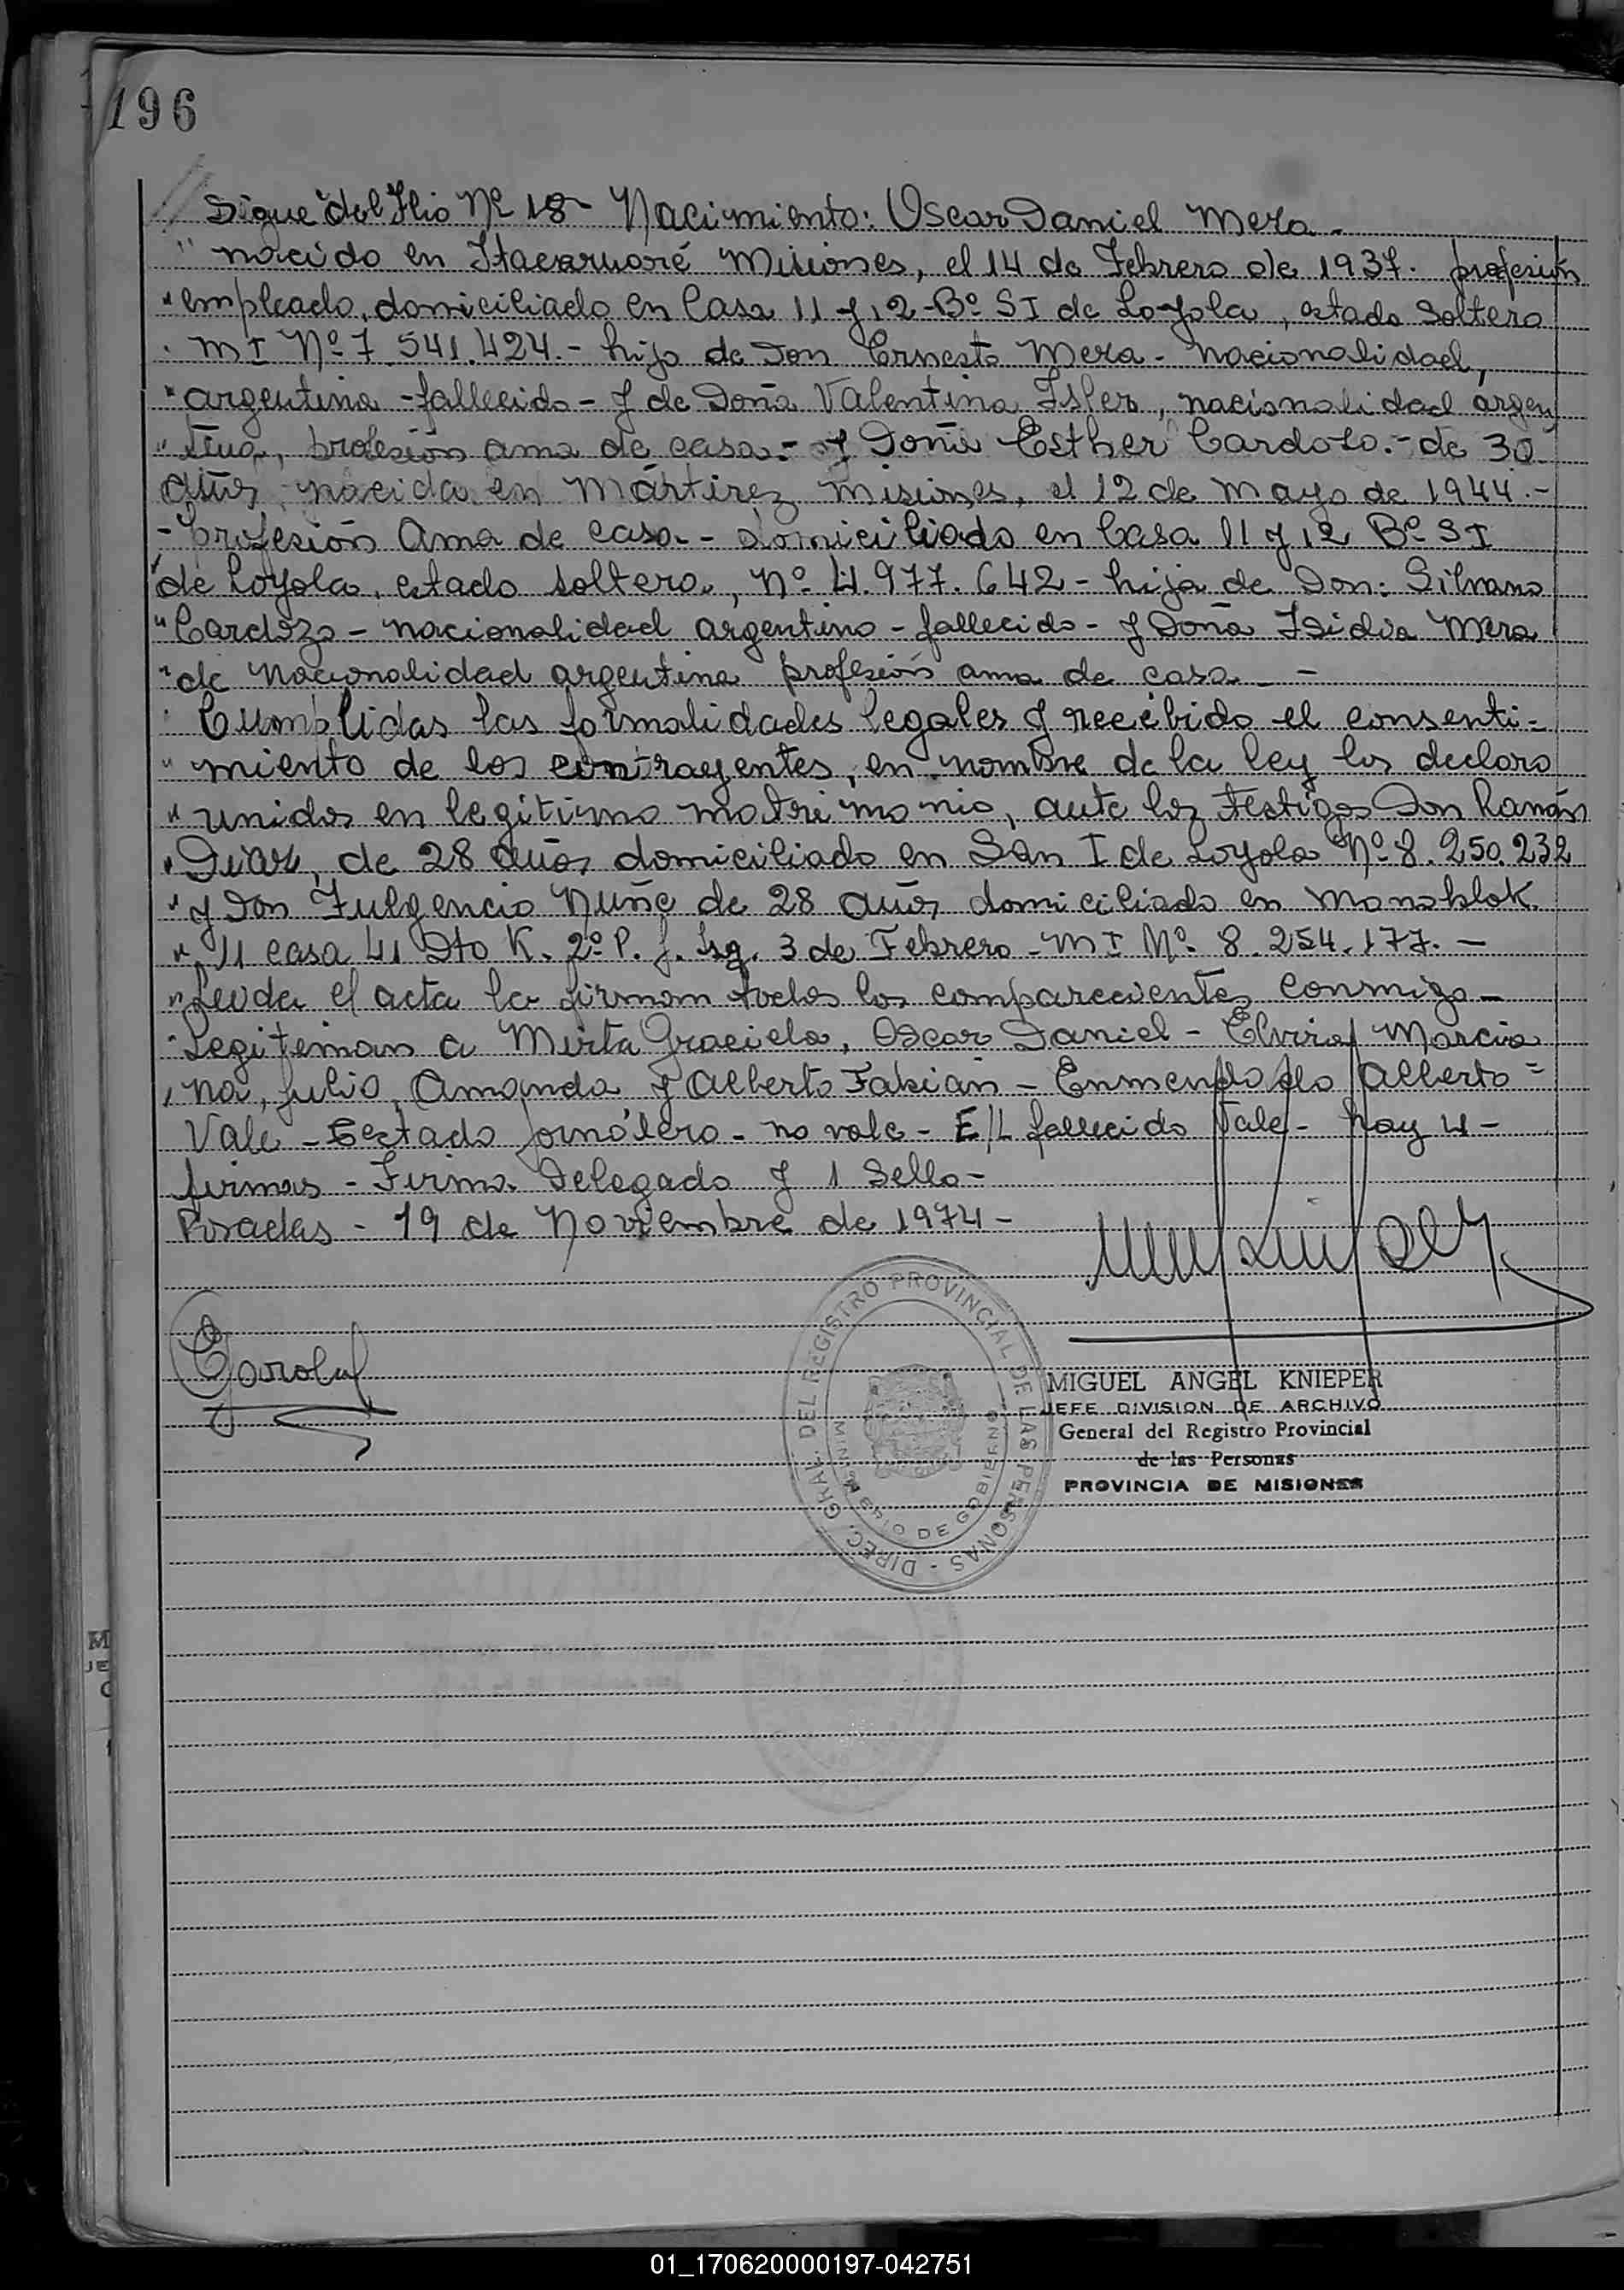 196
Sigue del Flio Nº 18 - Nacimiento: Oscar Daniel Mera -
" nacido en Itacaruaré Misiones, el 14 de Febrero de 1937. profesión
" empleado, domiciliado en Casa 11 y 12 - Bº S I de Loyola, estado Soltero
" M I Nº 7.541.424.- hijo de Don Ernesto Mera - nacionalidad,
" argentina - fallecido - y de Doña Valentina Isler, nacionalidad argen
" tina, profesión ama de casa.- y Doña Esther Cardozo.- de 30
años, nacida en Mártirez Misiones, el 12 de Mayo de 1944.-
- Profesión Ama de casa.- Domiciliado en Casa 11 y 12 Bº S I
de Loyola, estado soltera, Nº 4.977.642 - hija de Don: Silvano
" Cardozo - nacionalidad argentino - fallecido - y Doña Isidia Mera
" de Nacionalidad argentina profesión ama de casa - -
" Cumplidas las formalidades legales y recebido el consenti-
" miento de los contrayentes, en nombre de la ley los declaro
" unidos en legitimo matrimonio, ante los testigos Don Ramón
" Diaz, de 28 años, domiciliado en San I de Loyola Nº 8.250.232
" y Don Fulgencio Nuñe de 28 años domiciliado en Monoblok
" 11 casa 41 Dto K. 2º P. J. Isq. 3 de Febrero - M I Nº 8.254.177. -
" Leida el acta la firman todos los comparecientes conmigo -
" Legitiman a Mirta Graciela, Oscar Daniel - Elvira Marcia
" na, Julio, Amanda y Alberto Fabián - Enmendado Alberto =
Vale - Testado jornálero - no vale - E/L fallecido Vale - hay 4 -
firmas - Firma Delegado y 1 Sello -
Posadas - 19 de Noviembre de 1974 -
DIREC. GRAL. DEL REGISTRO PROVINCIAL DE LAS PERSONAS -
MINISTERIO DE GOBIERNO
MIGUEL ANGEL KNIEPER
JEFE DIVISION DE ARCHIVO
General del Registro Provincial
de las Personas
PROVINCIA DE MISIONES
01_170620000197-042751